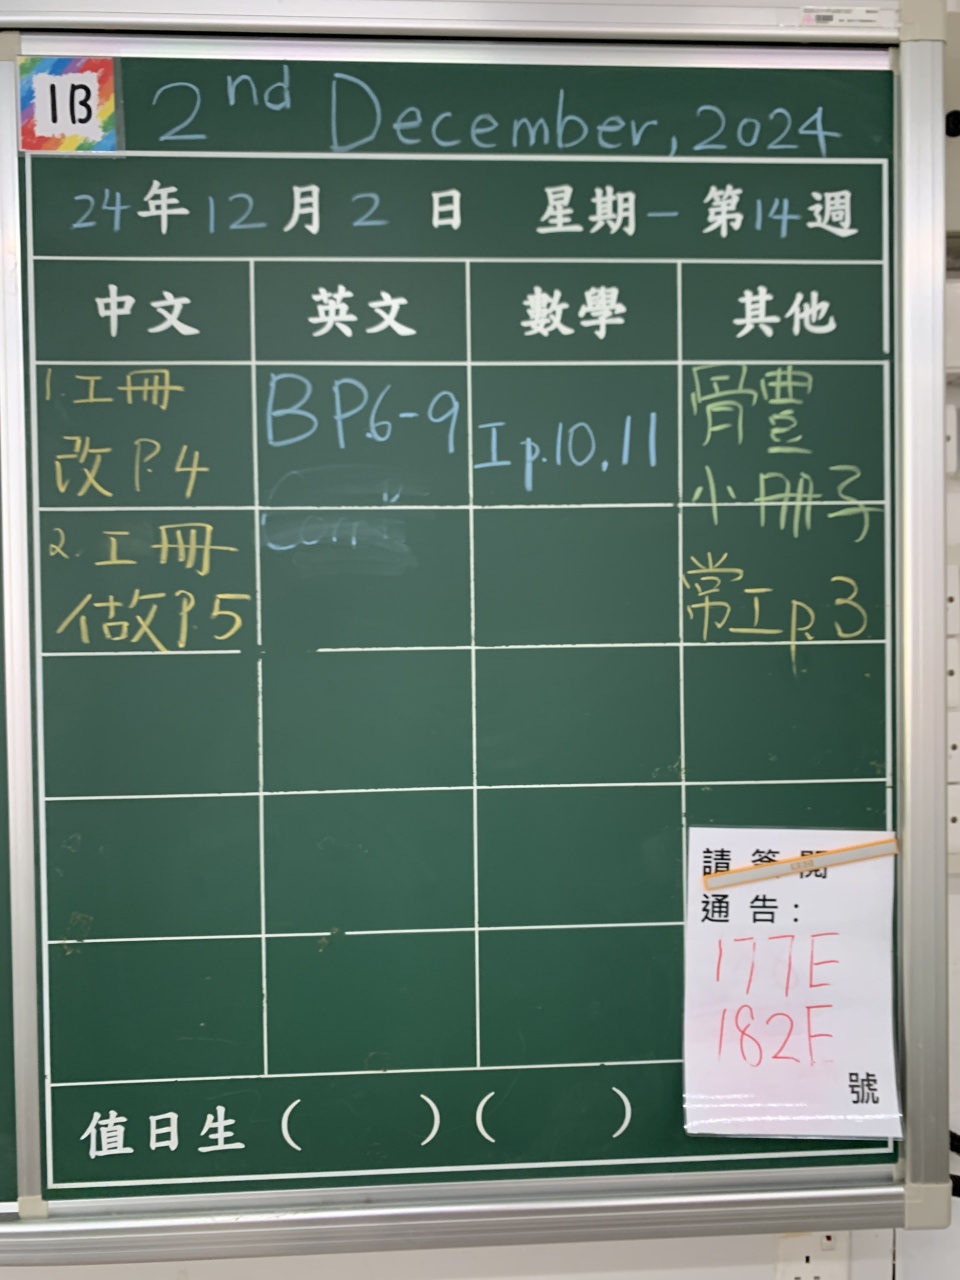 1B
2nd December, 2024
24年12月2日 星期一 第14週
中文 英文 數學 其他
1. 工冊
改P.4
BP.6-9
Ip.10,11
骨豊
小冊子
2. 工冊
做P.5
常工p.3
請簽閱
通告:
177E
182E
號
值日生( )( )